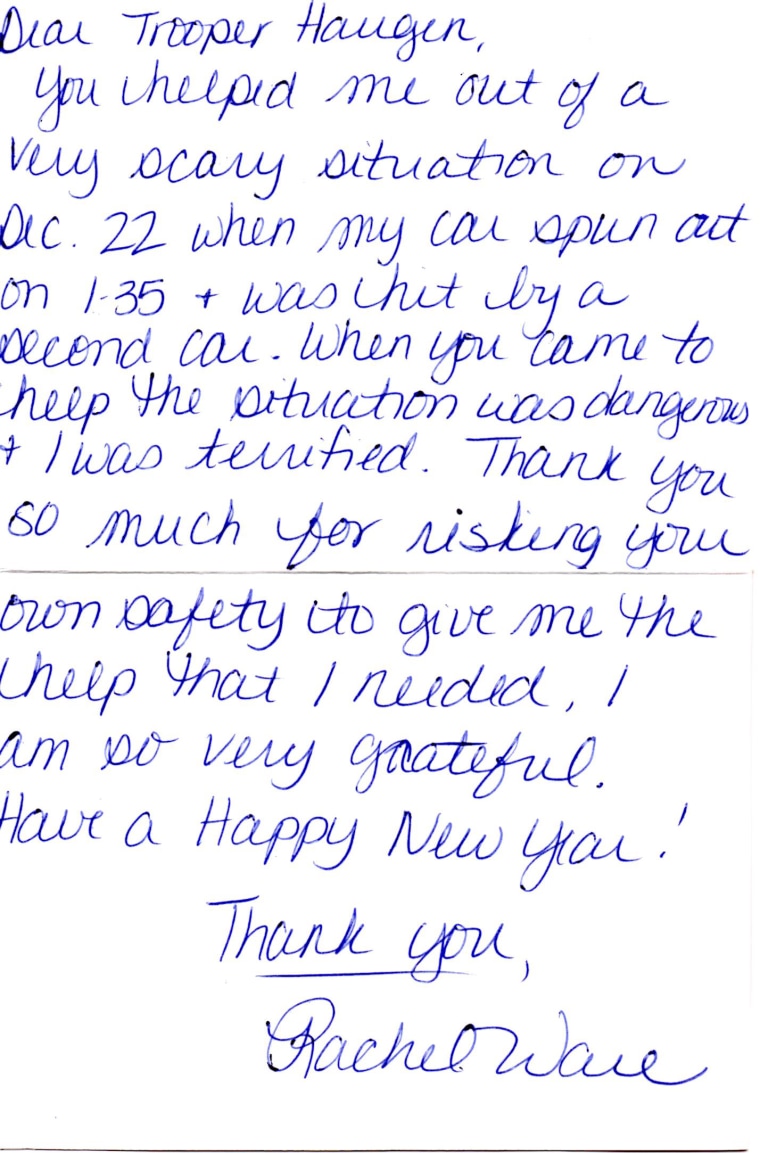 Dear Trooper Haugen,
You helped me out of a
very scary situation on
Dec. 22 when my car spun out
on I-35 + was hit by a
second car. When you came to
help the situation was dangerous
+ I was terrified. Thank you
so much for risking your
own safety to give me the
help that I needed, I
am so very grateful.
Have a Happy New Year!
Thank you,
Rachel Ware